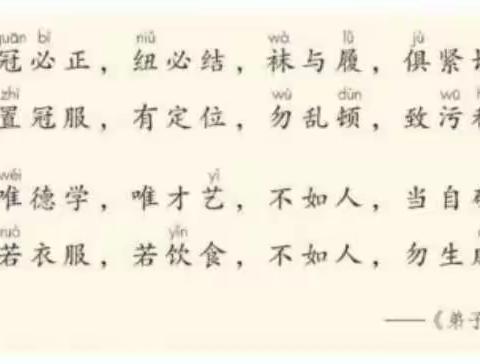 guān bì niǔ wà lǚ jù
冠必正，纽必结，袜与履，俱紧
zhì wù dùn wū
置冠服，有定位，勿乱顿，致污
wéi yì
唯德学，唯才艺，不如人，当自
ruò yǐn
若衣服，若饮食，不如人，勿生
——《弟子